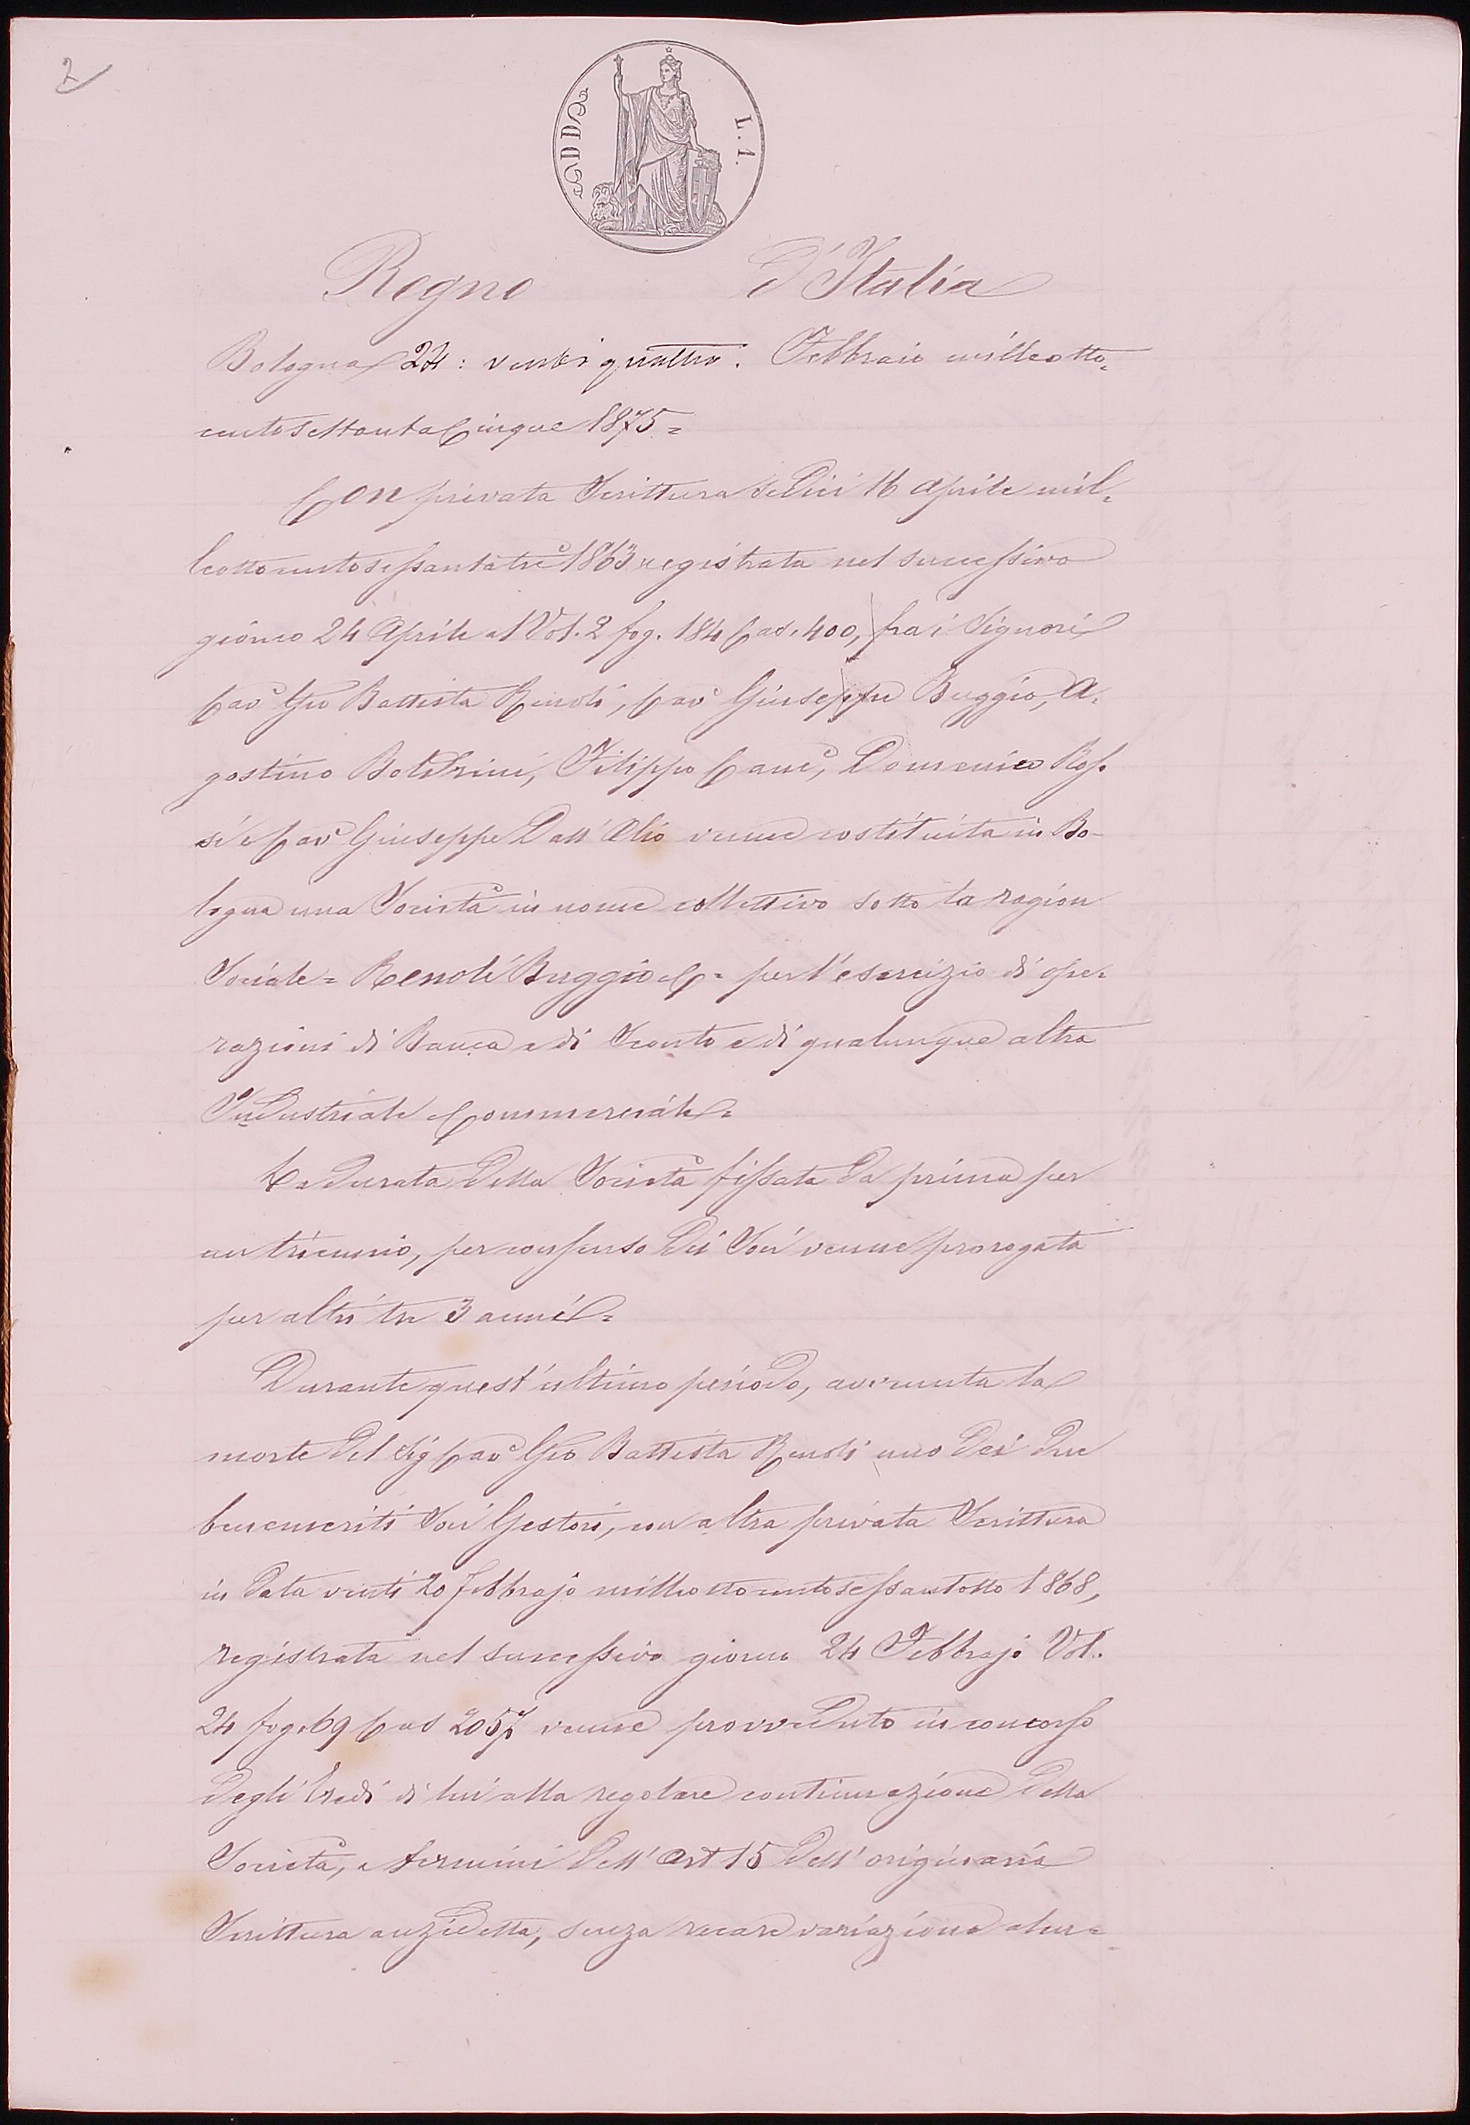 2
DD
L. 1.
Regno d'Italia
Bologna 24: venti quattro. Febbraio milleotto=
centosettantaCinque 1875=
Con privata Scrittura sedici 16 Aprile mil=
leottocentosessantatrè 1863 registrata nel successivo
giorno 24 Aprile al Vol. 2 fog. 184 Cas. 400, fra i Signori
Cavᵉ Gio Battista Renoli, Cavᵉ Giuseppe Buggio, A=
gostino Boldrini, Filippo Canè, Domenico Ros=
si e Cavᵉ Giuseppe Dall'Olio venne costituita in Bo-
logna una Società in nome collettivo sotto la ragion
Sociale= Renoli Buggio e C= per l'esercizio di ope=
razioni di Banca e di Sconto e di qualunque altra
Industriale e Commerciale=
La durata della Società fissata da prima per
un triennio, per consenso dei Soci venne prorogata
per altri tre 3 anni=
Durante quest'ultimo periodo, avvenuta la
morte del Sig Cavᵉ Gio Battista Renoli uno dei due
benemeriti Soci Gestori, con altra privata Scrittura
in data venti 20 febbrajo milleottocentosessantotto 1868,
registrata nel successivo giorno 24 Febbrajo Vol.
24 fog. 69 Cas 2057 venne provveduto in concorso
degli Eredi di lui alla regolare continuazione della
Società, a termini dell'Art 15 dell'originaria
Scrittura anzidetta, senza recare variazione alcu=